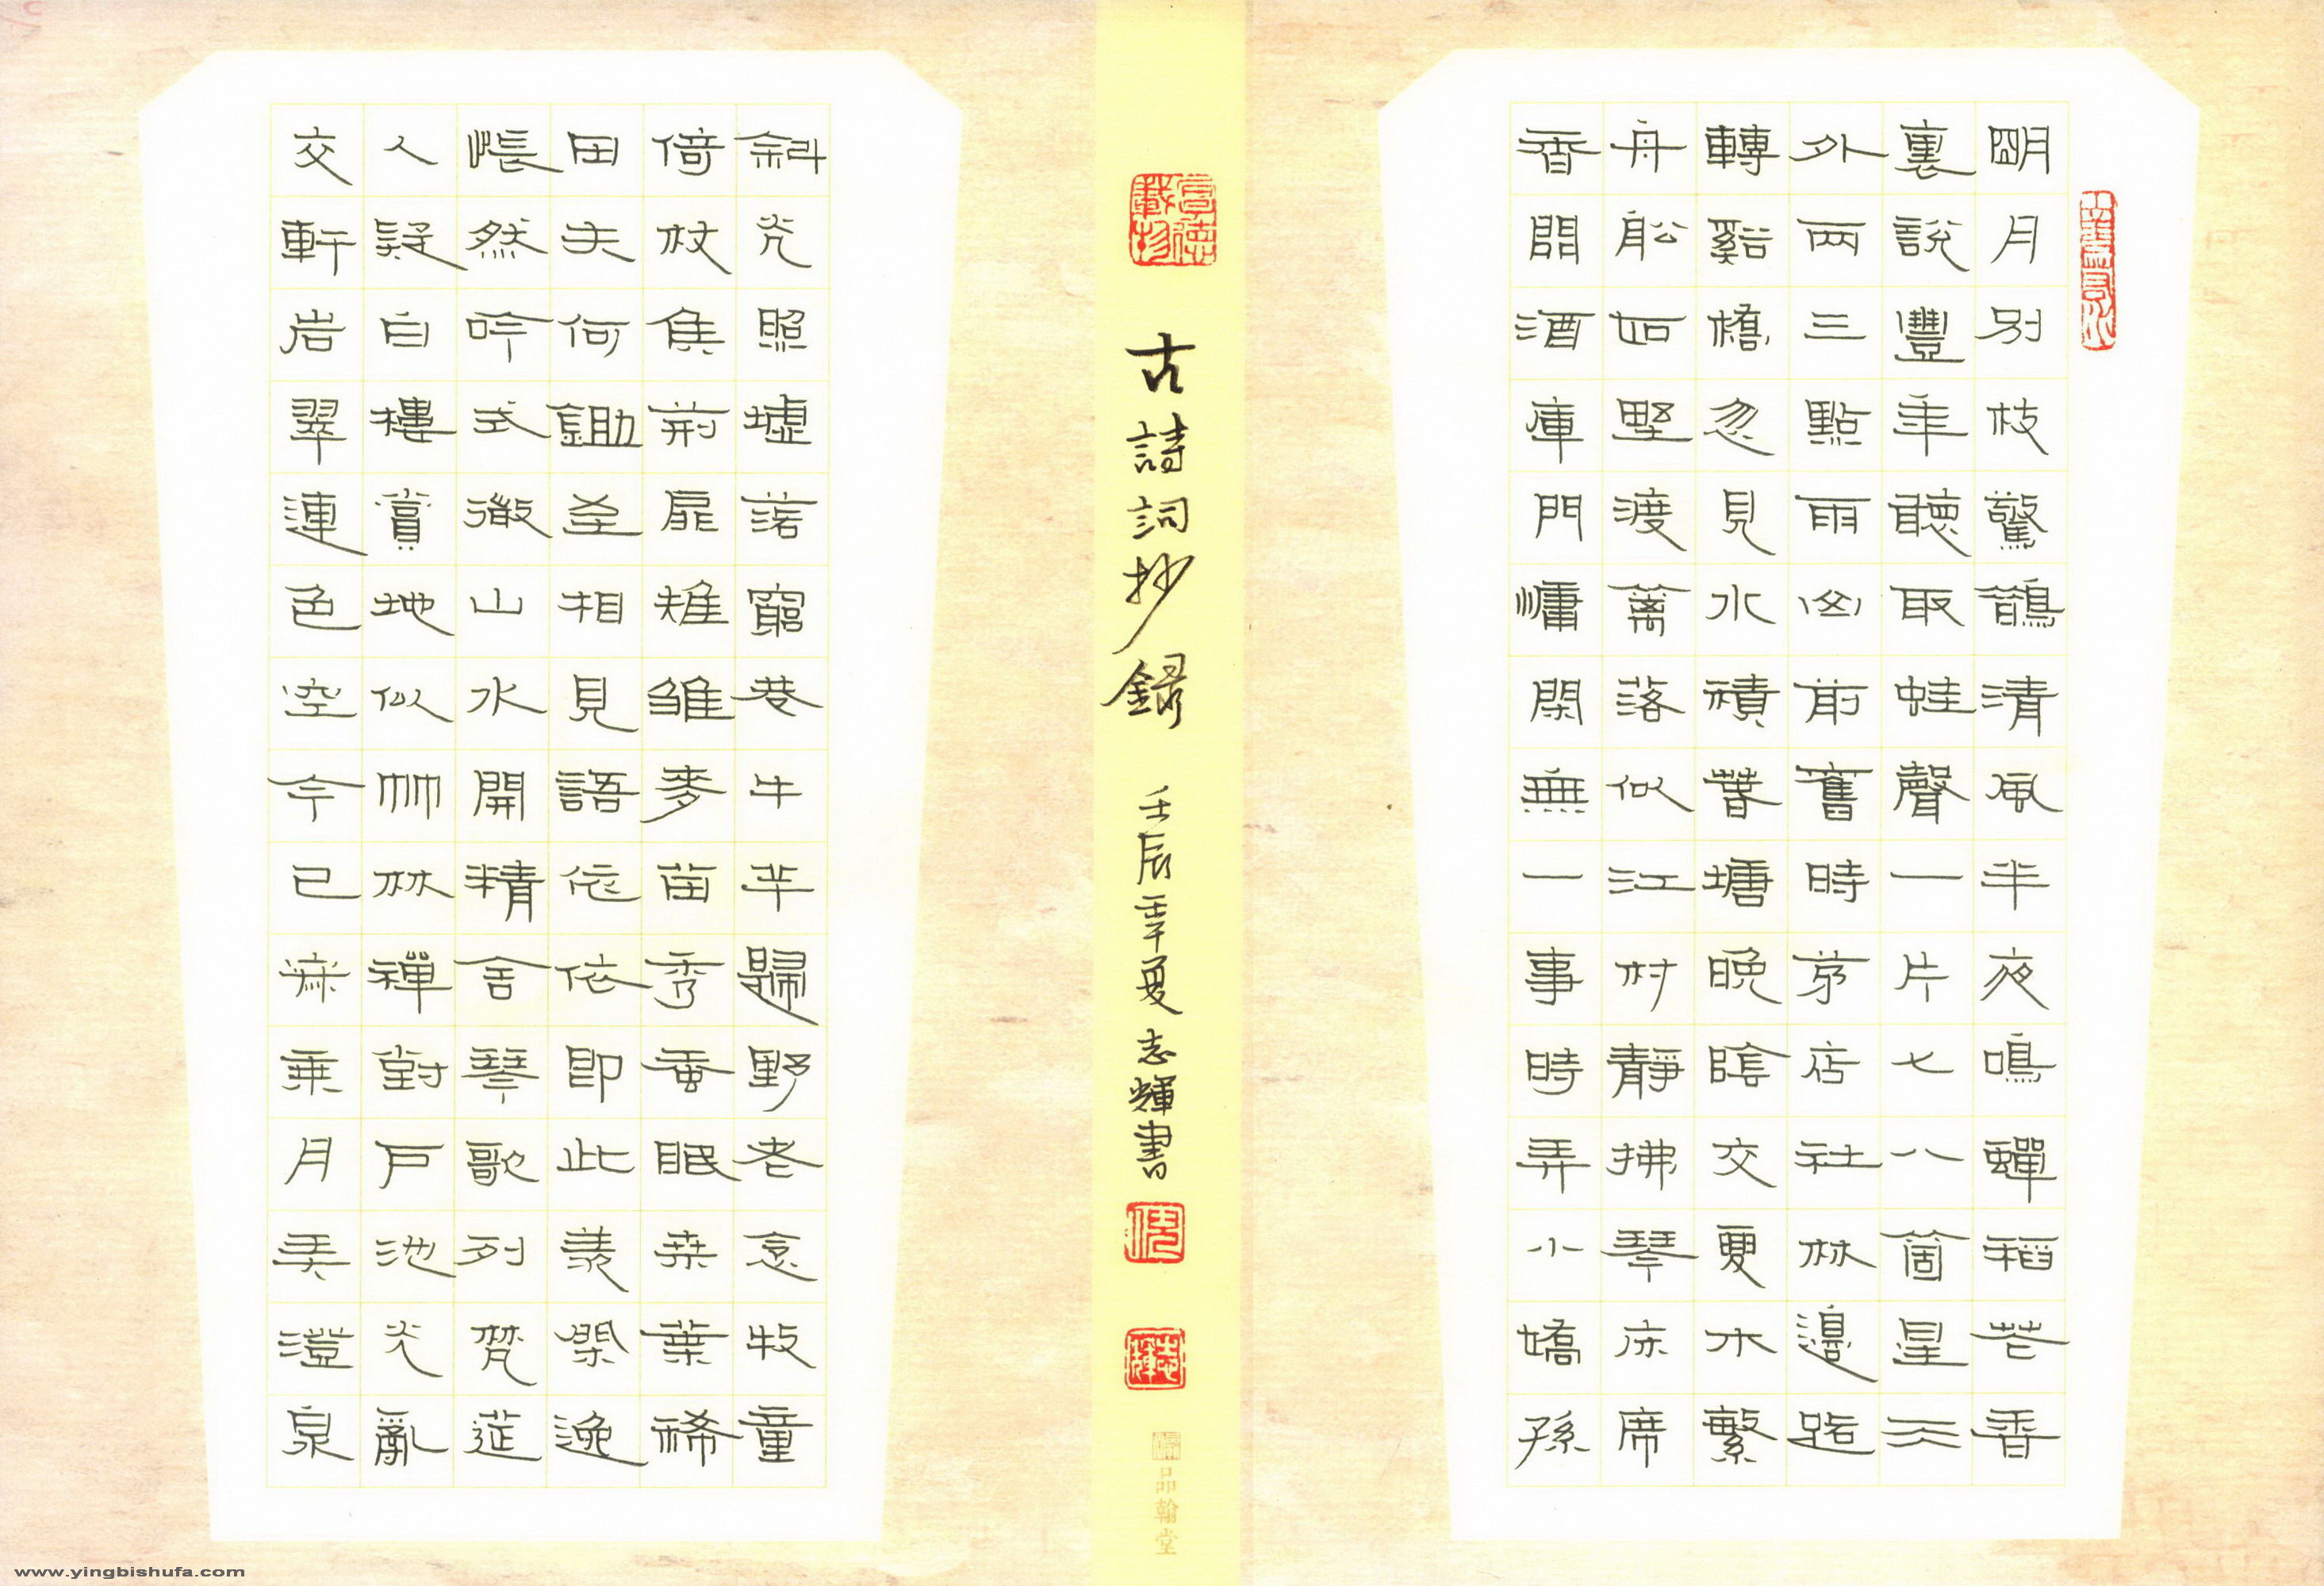 明月別枝驚鵲清風半夜鳴蟬稻花香
裏說豐年聽取蛙聲一片七八箇星天
外兩三點雨山前舊時茅店社林邊路
轉谿橋忽見水積春塘晚陰交夏木繁
舟船如野渡籬落似江村靜拂琴床席
香開酒庫門慵閑無一事時弄小嬌孫
古詩詞抄錄 壬辰年夏 志輝書
厚德載物
志輝
品翰堂
斜光照墟落窮巷牛羊歸野老念牧童
倚杖侯荊扉雉雊麥苗秀蠶眠桑葉稀
田夫何鋤至相見語依依即此羨閑逸
悵然吟式微山水開精舍琴歌列梵筵
人疑白樓賞地似竹林禪對戶池光亂
交軒岩翠連色空今已寂乘月弄澄泉
www.yingbishufa.com